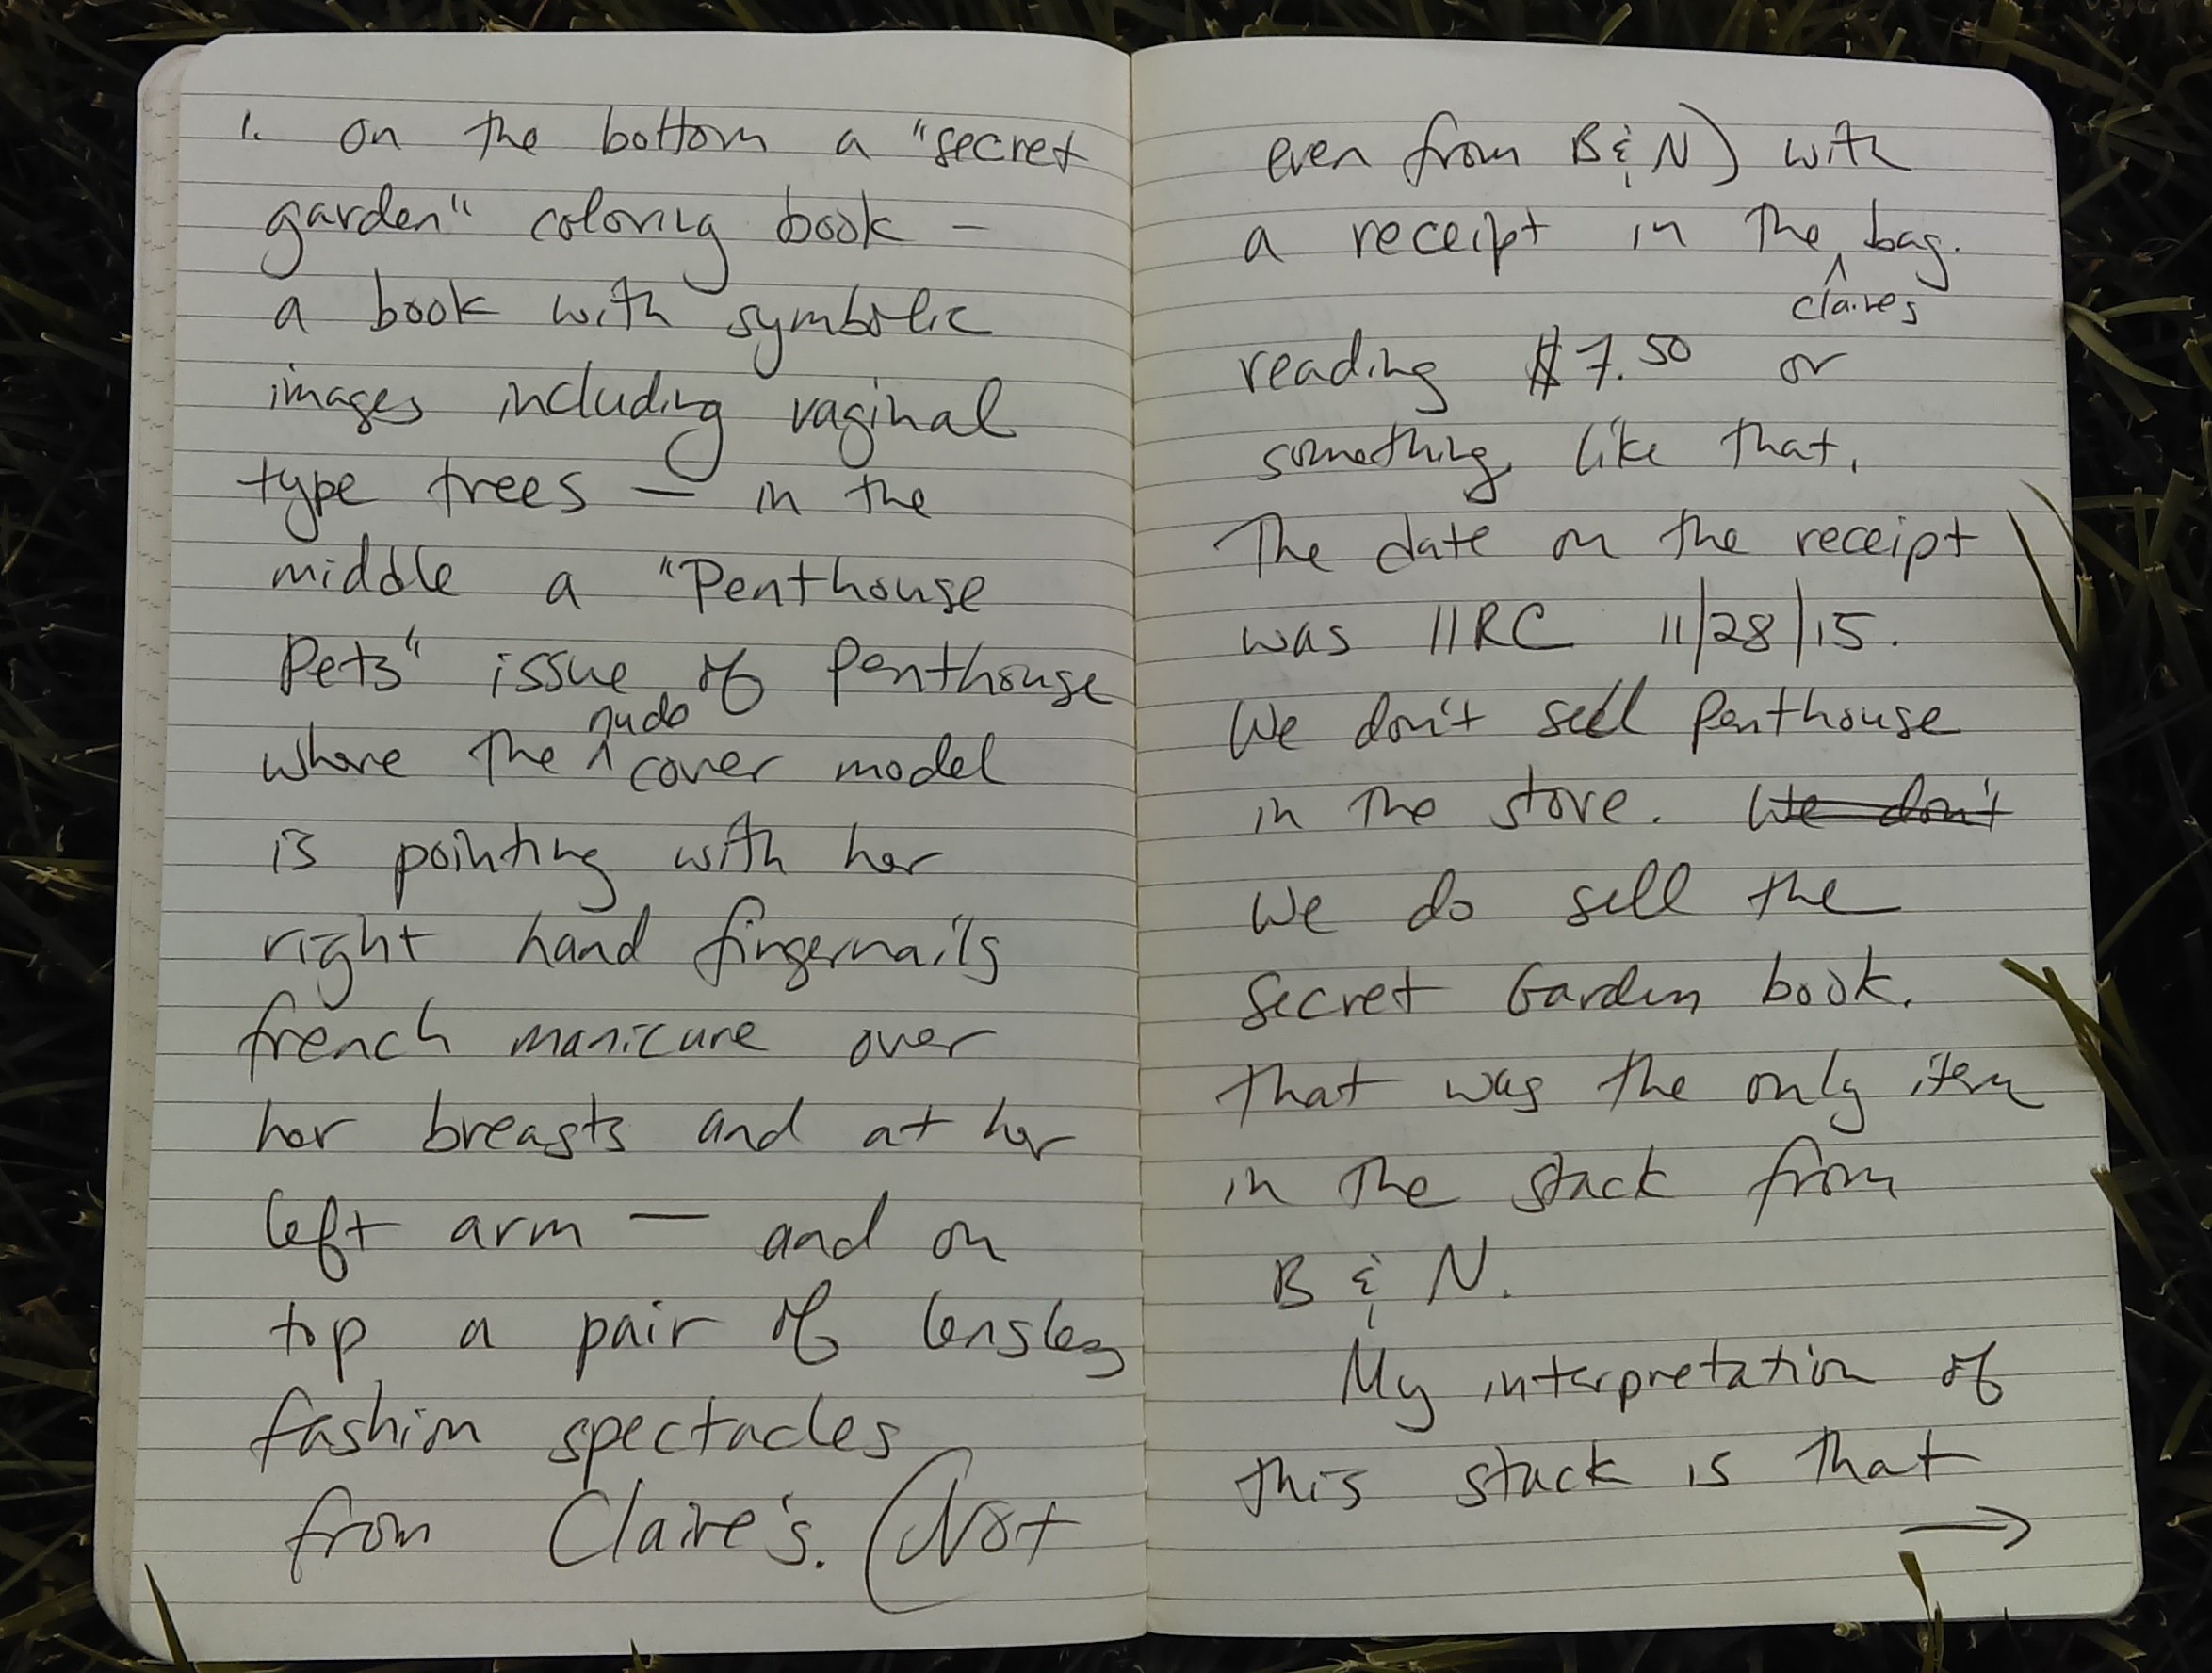 1. on the bottom a "secret
garden" coloring book —
a book with symbolic
images including vaginal
type trees — in the
middle a "Penthouse
Pets" issue of Penthouse
nude
where the ^ cover model
is pointing with her
right hand fingernails
french manicure over
her breasts and at her
left arm — and on
top a pair of lensless
fashion spectacles
from Claire's. (Not
even from B & N) with
a receipt in the ^ bag.
claires
reading $7.50 or
something like that.
The date on the receipt
was IIRC 11/28/15.
We don't sell Penthouse
in the store. We don't
We do sell the
Secret Garden book.
That was the only item
in the stack from
B & N.
My interpretation of
this stack is that
→